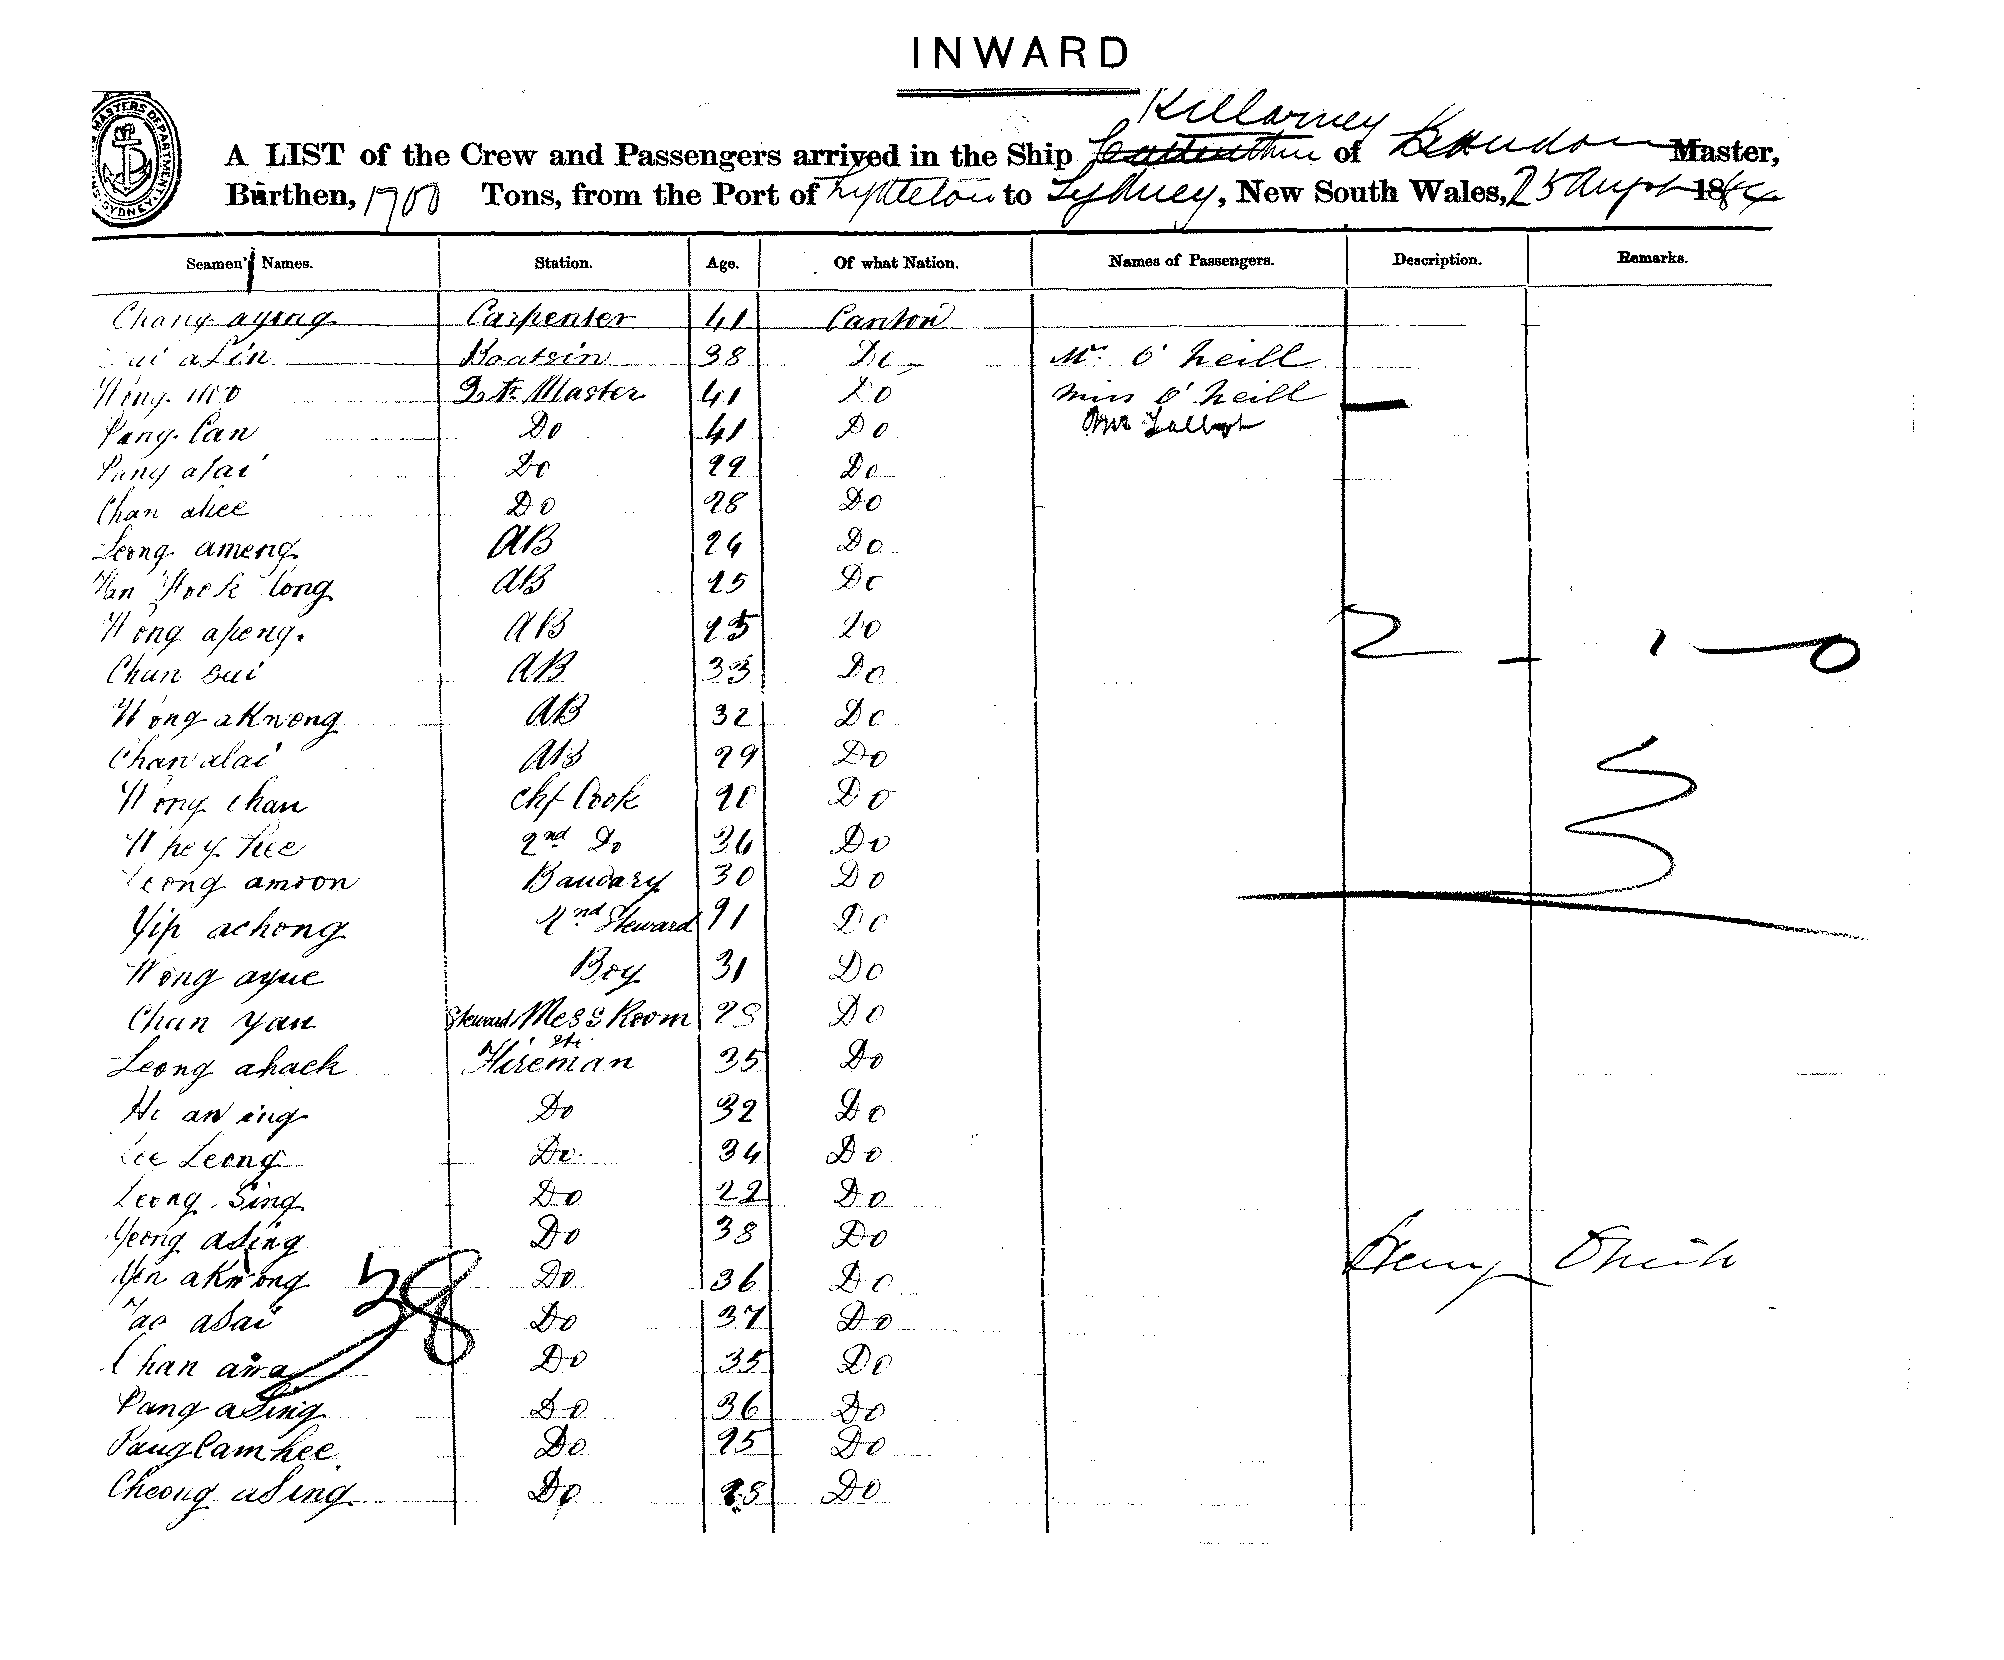 INWARD
Killarney
A LIST of the Crew and Passengers arrived in the Ship of Master,
Burthen, 1700 Tons, from the Port of Lyttleton to Sydney, New South Wales, 25 August 1884
Seamen's Names. Station. Age. Of what Nation. Names of Passengers. Description. Remarks.
Chong ayong Carpenter 41 Canton
aLin Boatsin 38 Do Mr. O'Neill
Wong Qtr Master 41 Do Miss O'Neill
Pang Can Do 41 Do
Pang asai Do 29 Do
Chan ahee Do 28 Do
Leong ameng AB 24 Do
Hock Cong AB 25 Do
Wong apeng. AB 25 Do
Chan sui AB 33 Do
Wong aKwong AB 32 Do
Chan alai AB 29 Do
Wong Chan Chf Cook 20 Do
Whey hee 2nd Do 36 Do
Leong amoon Bandary 30 Do
Yip achong 2nd Steward 21 Do
Wong ayue Boy 31 Do
Chan Yau Steward Mess Room 28 Do
Leong ahack Fireman 35 Do
Ho Do 32 Do
Lee Leong Do 34 Do
Leong Sing Do 22 Do
Yeong aSing Do 38 Do
Yen aKwong Do 36 Do
Yao asai Do 37 Do
Chan awa Do 35 Do
38
Pang aSing Do 36 Do
Pang Cam hee Do 25 Do
Cheong aSing Do 28 Do